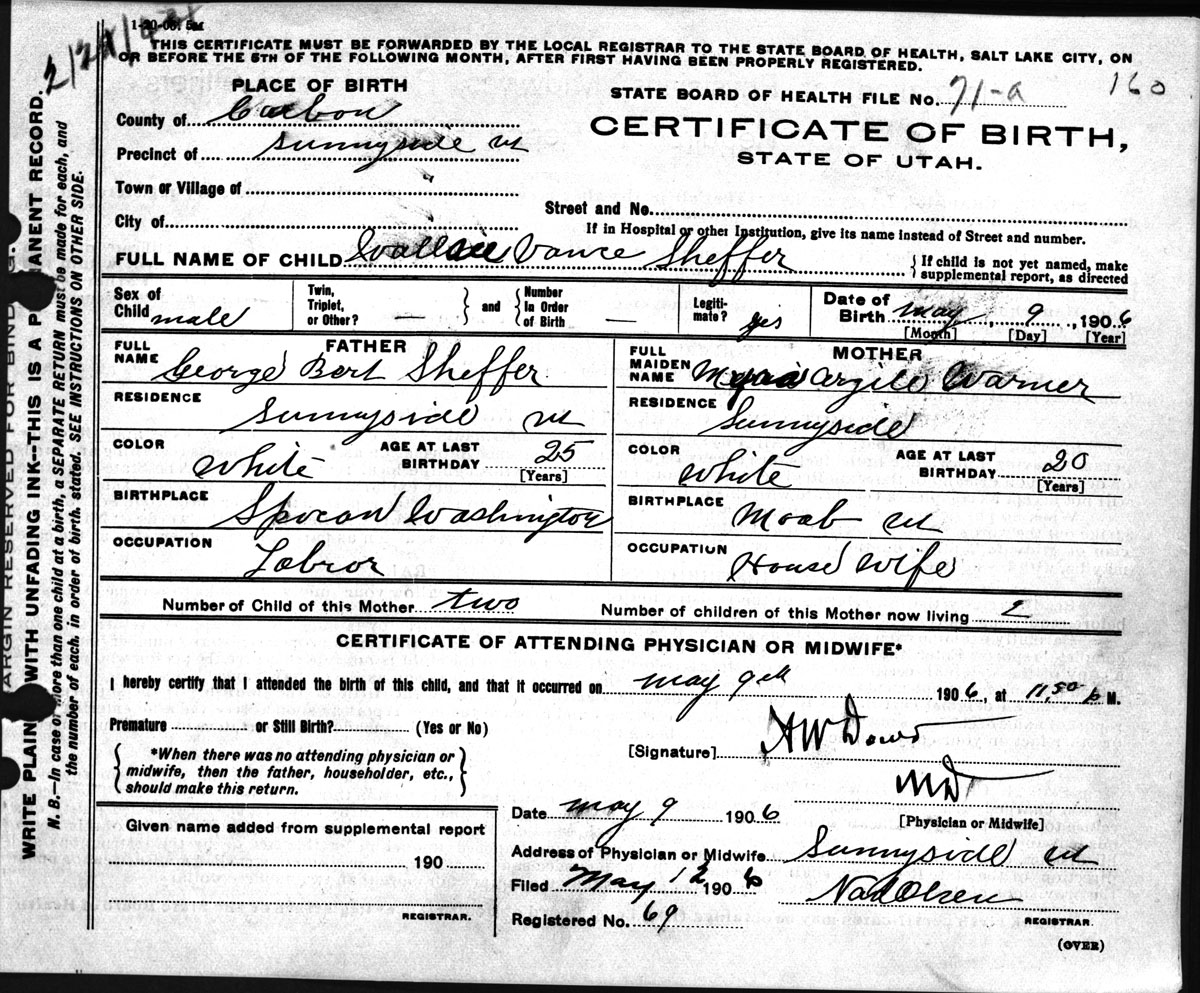 1-20-06
THIS CERTIFICATE MUST BE FORWARDED BY THE LOCAL REGISTRAR TO THE STATE BOARD OF HEALTH, SALT LAKE CITY, ON
OR BEFORE THE 5TH OF THE FOLLOWING MONTH, AFTER FIRST HAVING BEEN PROPERLY REGISTERED.
PLACE OF BIRTH
STATE BOARD OF HEALTH FILE NO. 71-a 160
County of Carbon
CERTIFICATE OF BIRTH,
Precinct of Sunnyside Ut
STATE OF UTAH.
Town or Village of
Street and No.
City of
If in Hospital or other Institution, give its name instead of Street and number.
FULL NAME OF CHILD Wallace Vance Sheffer { If child is not yet named, make
supplemental report, as directed
Sex of Child male Twin, Triplet, or Other? — and Number in Order of Birth — Legitimate? yes Date of Birth may 9, 1906
[Month] [Day] [Year]
FATHER
FULL NAME George Bert Sheffer
RESIDENCE Sunnyside Ut
COLOR White AGE AT LAST BIRTHDAY 25
[Years]
BIRTHPLACE Spocan Washington
OCCUPATION Labror
MOTHER
FULL MAIDEN NAME Argile Warner
RESIDENCE Sunnyside
COLOR White AGE AT LAST BIRTHDAY 20
[Years]
BIRTHPLACE Moab Ut
OCCUPATION House Wife
Number of Child of this Mother two Number of children of this Mother now living 2
CERTIFICATE OF ATTENDING PHYSICIAN OR MIDWIFE*
I hereby certify that I attended the birth of this child, and that it occurred on may 9th 1906, at 11,50 p M.
Premature or Still Birth? (Yes or No)
[Signature] A W Dowd
*When there was no attending physician or
midwife, then the father, householder, etc.,
should make this return.
MD
[Physician or Midwife]
Date may 9 1906
Address of Physician or Midwife Sunnyside Ut
Filed May 12 1906
Registered No. 69
REGISTRAR.
(OVER)
Given name added from supplemental report
190
REGISTRAR.
MARGIN RESERVED FOR BINDING.
WRITE PLAINLY WITH UNFADING INK—THIS IS A PERMANENT RECORD.
N. B.—In case of more than one child at a birth, a SEPARATE RETURN must be made for each, and
the number of each, in order of birth, stated. SEE INSTRUCTIONS ON OTHER SIDE.